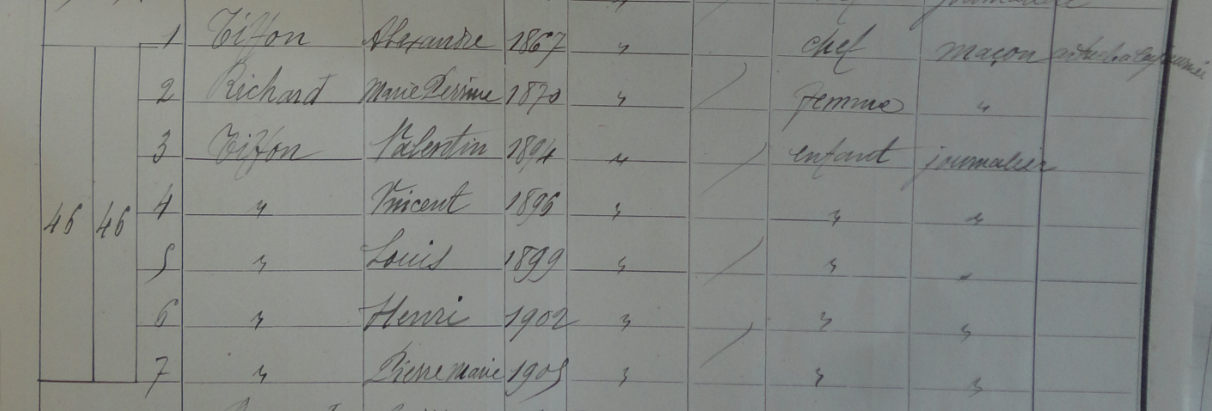 1 Tiffon Alexandre 1867 " chef maçon
2 Richard Marie Perrine 1870 " femme "
3 Tiffon Valentin 1894 " enfant journalier
46 46 4 " Vincent 1896 " " "
5 " Louis 1899 " " "
6 " Henri 1902 " " "
7 " Pierre Marie 1905 " " "